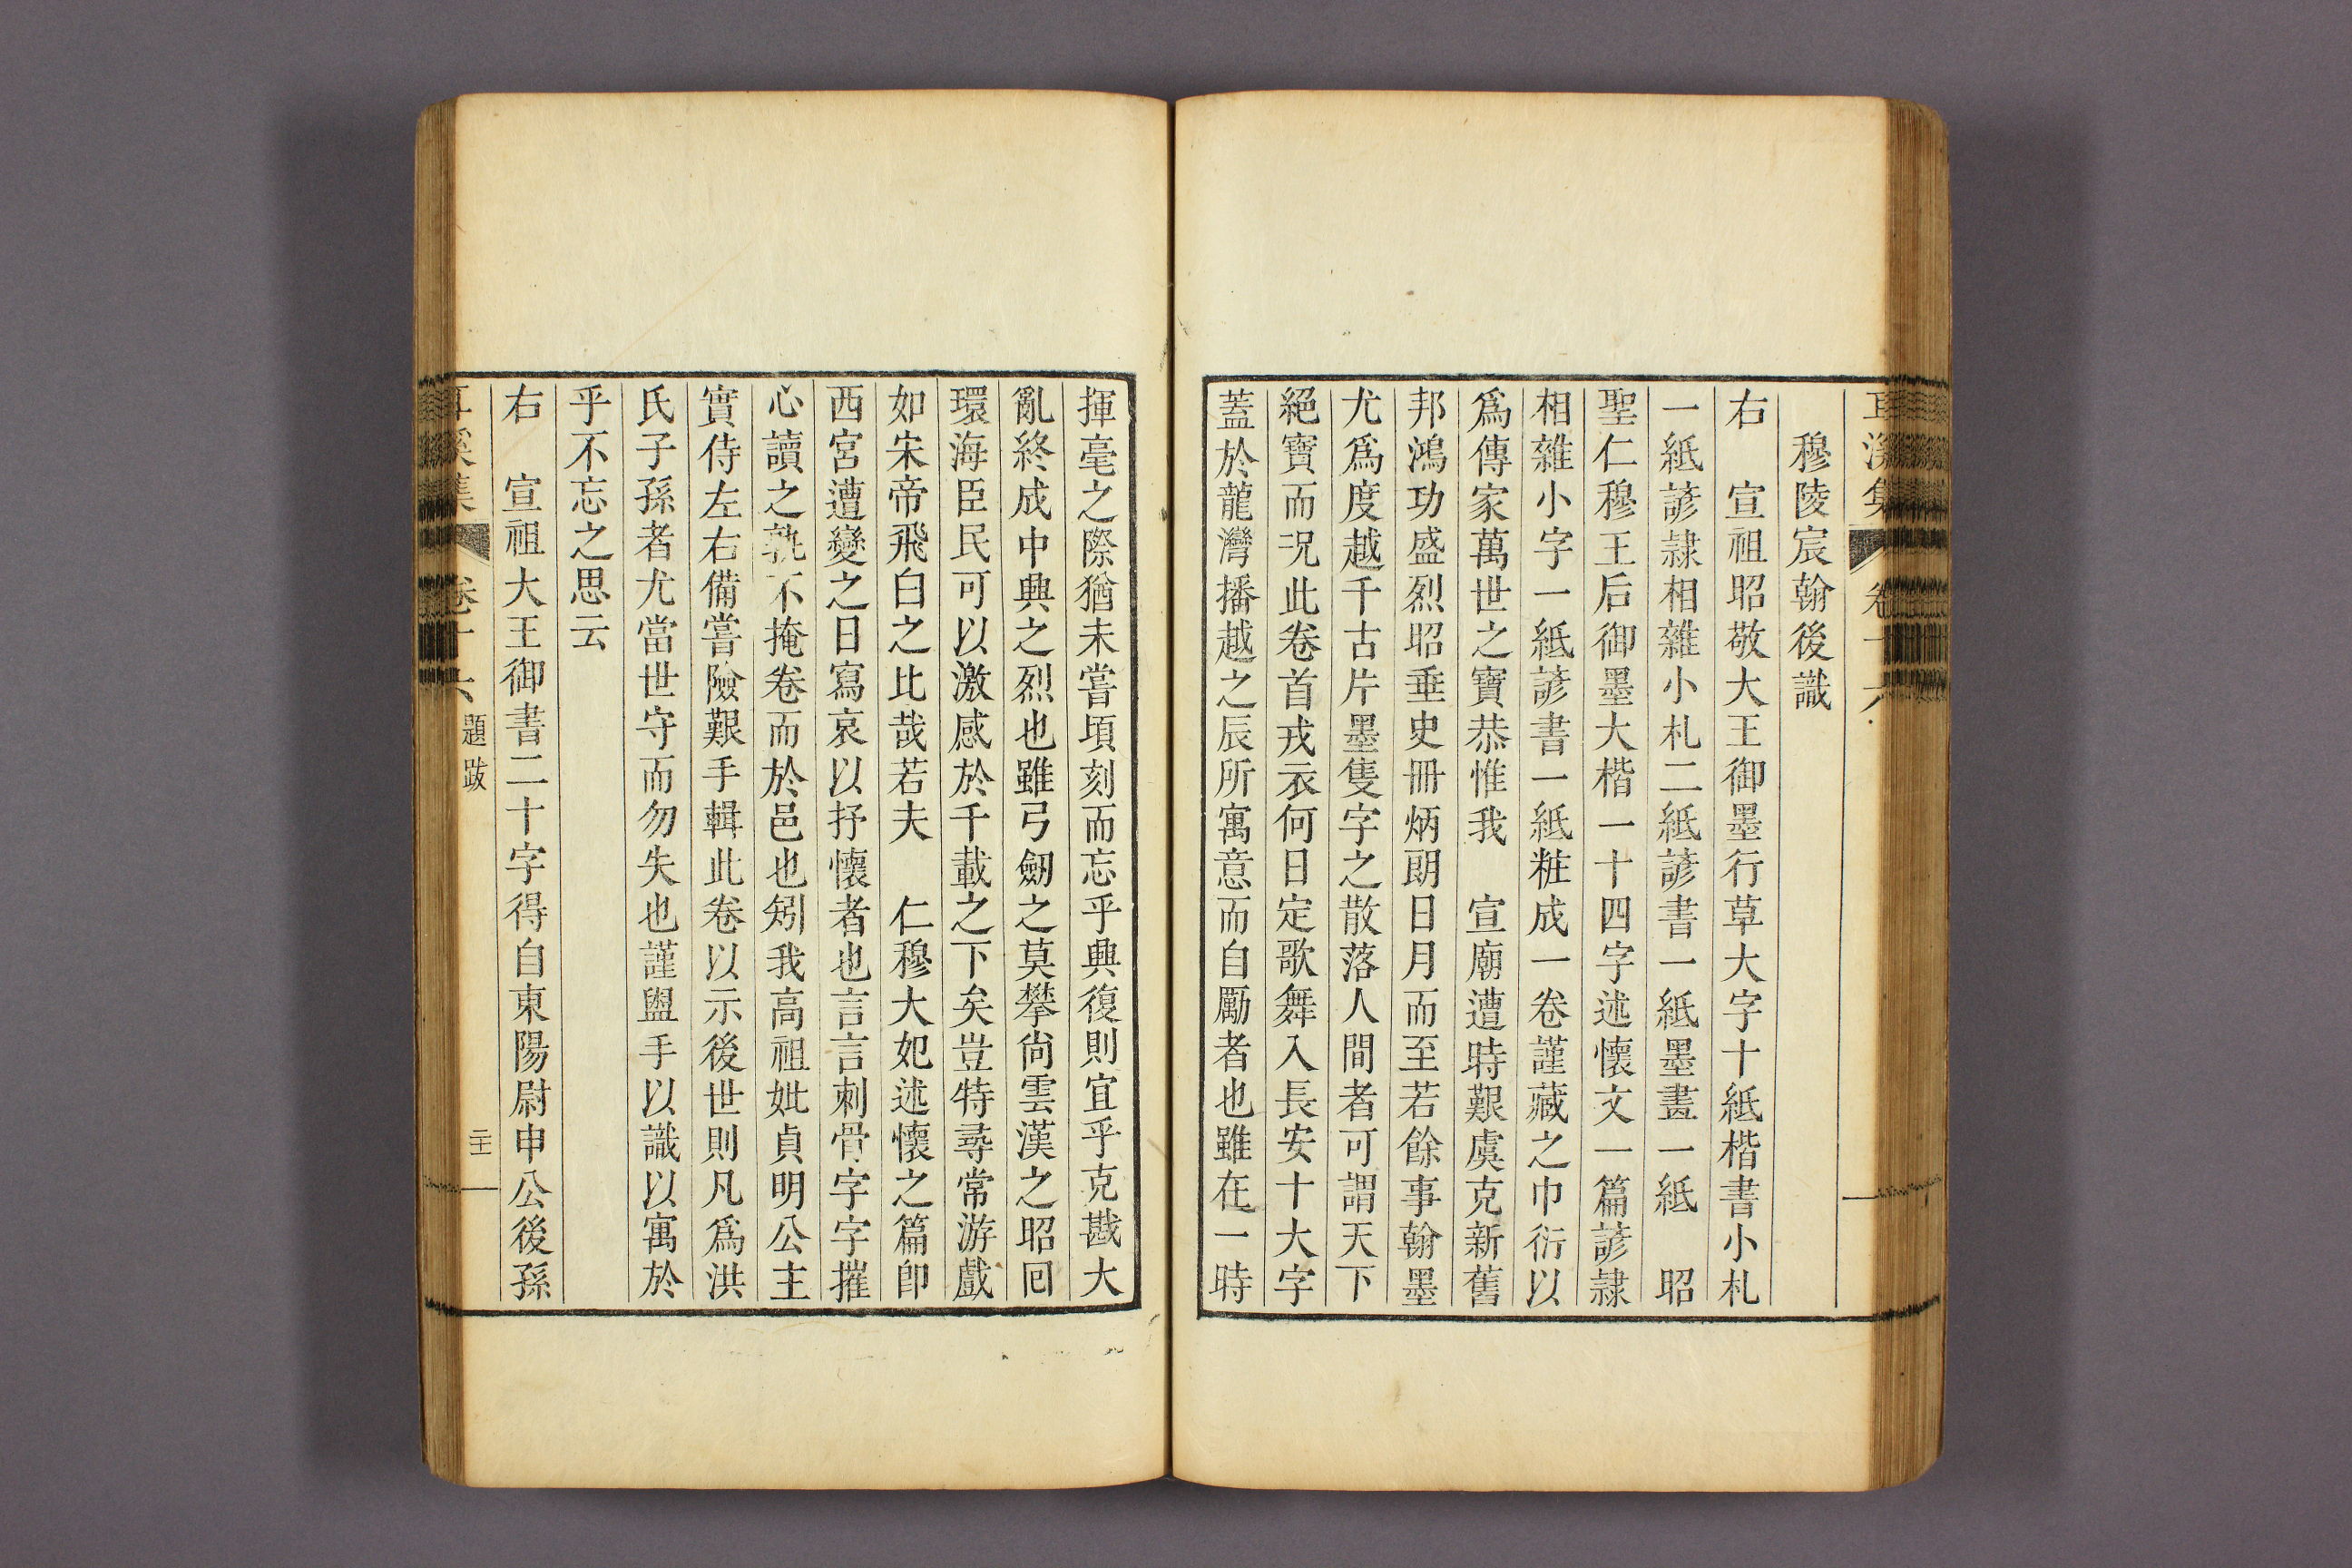 耳溪集 卷十六
穆陵宸翰後識
右 宣祖昭敬大王御墨行草大字十紙楷書小札
一紙諺隷相雜小札二紙諺書一紙墨畫一紙 昭
聖仁穆王后御墨大楷一十四字述懷文一篇諺隷
相雜小字一紙諺書一紙粧成一卷謹藏之巾衍以
爲傳家萬世之寶恭惟我 宣廟遭時艱虞克新舊
邦鴻功盛烈昭垂史冊炳朗日月而至若餘事翰墨
尤爲度越千古片墨隻字之散落人間者可謂天下
絕寶而况此卷首戎衣何日定歌舞入長安十大字
蓋於龍灣播越之辰所寓意而自勵者也雖在一時
揮毫之際猶未嘗頃刻而忘乎興復則宜乎克戡大
亂終成中興之烈也雖弓劒之莫攀尙雲漢之昭回
環海臣民可以激感於千載之下矣豈特尋常游戲
如宋帝飛白之比哉若夫 仁穆大妃述懷之篇卽
西宮遭變之日寫哀以抒懷者也言言刺骨字字摧
心讀之孰不掩卷而於邑也矧我高祖妣貞明公主
實侍左右備嘗險艱手輯此卷以示後世則凡爲洪
氏子孫者尤當世守而勿失也謹盥手以識以寓於
乎不忘之思云
右 宣祖大王御書二十字得自東陽尉申公後孫
耳溪集 卷十六 題跋 二十